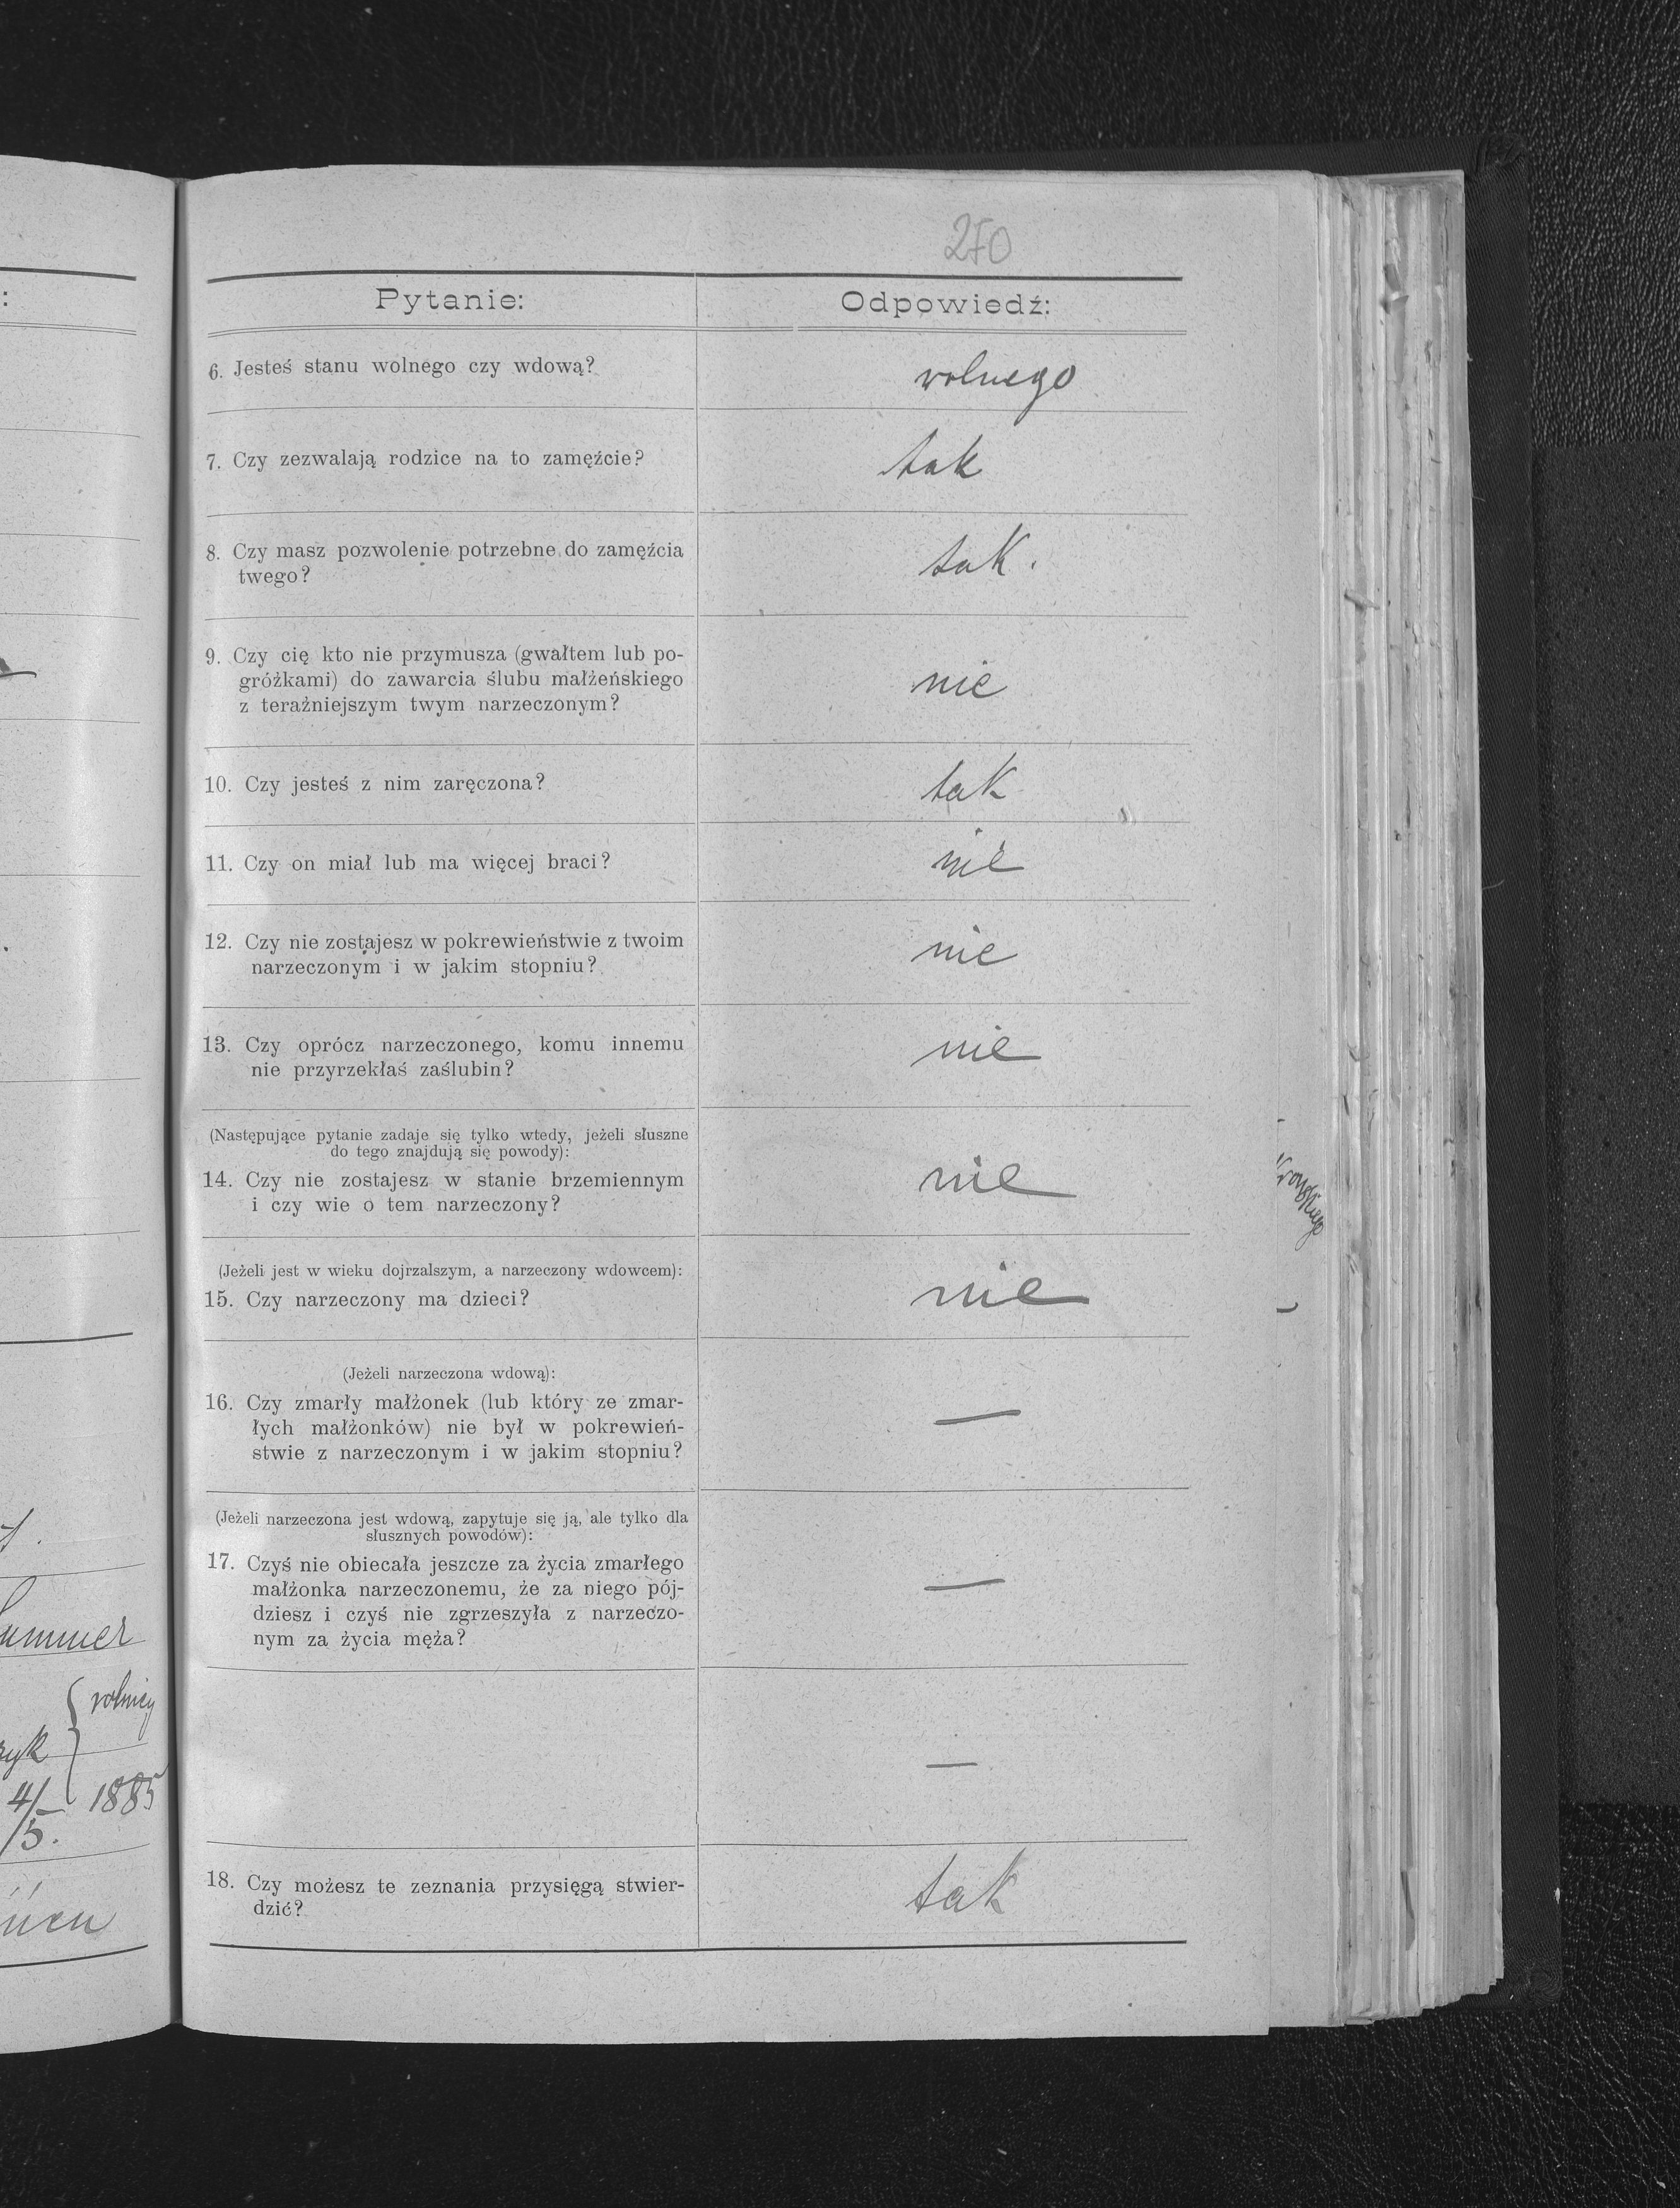 270
Pytanie: Odpowiedź:
6. Jesteś stanu wolnego czy wdową? wolnego
7. Czy zezwalają rodzice na to zamęźcie? tak
8. Czy masz pozwolenie potrzebne do zamęźcia
twego? tak.
9. Czy cię kto nie przymusza (gwałtem lub po-
gróżkami) do zawarcia ślubu małżeńskiego
z teraźniejszym twym narzeczonym? nie
10. Czy jesteś z nim zaręczona? tak
11. Czy on miał lub ma więcej braci? nie
12. Czy nie zostajesz w pokrewieństwie z twoim
narzeczonym i w jakim stopniu? nie
13. Czy oprócz narzeczonego, komu innemu
nie przyrzekłaś zaślubin? nie
(Następujące pytanie zadaje się tylko wtedy, jeżeli słuszne
do tego znajdują się powody):
14. Czy nie zostajesz w stanie brzemiennym
i czy wie o tem narzeczony? nie
(Jeżeli jest w wieku dojrzalszym, a narzeczony wdowcem):
15. Czy narzeczony ma dzieci? nie
(Jeżeli narzeczona wdową):
16. Czy zmarły małżonek (lub który ze zmar-
łych małżonków) nie był w pokrewień-
stwie z narzeczonym i w jakim stopniu? —
(Jeżeli narzeczona jest wdową, zapytuje się ją, ale tylko dla
słusznych powodów):
17. Czyś nie obiecała jeszcze za życia zmarłego
małżonka narzeczonemu, że za niego pój-
dziesz i czyś nie zgrzeszyła z narzeczo-
nym za życia męża? —
—
18. Czy możesz te zeznania przysięgą stwier-
dzić? tak
rolnicy
4/5. 1885